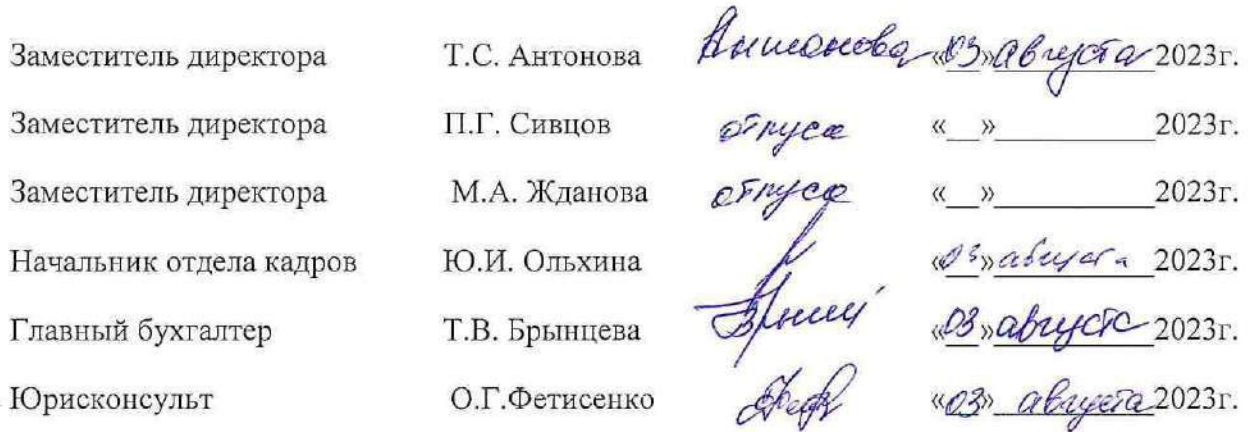 Заместитель директора Т.С. Антонова Антонова «03» августа 2023г.
Заместитель директора П.Г. Сивцов отпуск «__»____________2023г.
Заместитель директора М.А. Жданова отпуск «__»____________2023г.
Начальник отдела кадров Ю.И. Ольхина «03» августа 2023г.
Главный бухгалтер Т.В. Брынцева «03» августа 2023г.
Юрисконсульт О.Г.Фетисенко «03» августа 2023г.